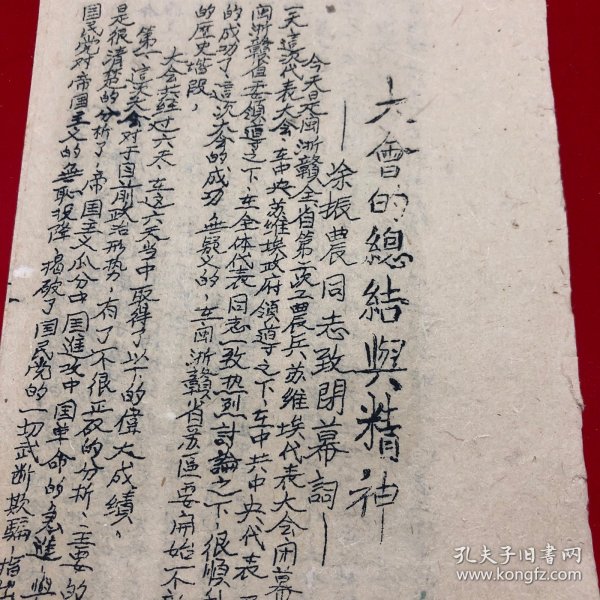 大會的總結與精神
——涂振農同志致閉幕詞——
今天是闽浙赣全省第一次工農兵苏维埃代表大会闭幕
一天這次代表大会、在中央苏维埃政府領導之下在中共中央代表
闽浙赣省委領導之下、在全体代表同志一致热烈討論之下、很順利
的成功了、這次大会的成功無疑义的、在闽浙赣省苏區要開始一
的历史階段,
大会共经过六天、在這六天当中取得了以下的偉大成績、
第一、這次大会对于目前政治形势、有了很正确的分析、主要的
是很清楚的分析了、帝国主义瓜分中国進攻中国革命的急進與
国民党对帝国主义的無恥投降、揭破了国民党的一切武断欺騙、指出
孔夫子旧书网
www.kongfz.com